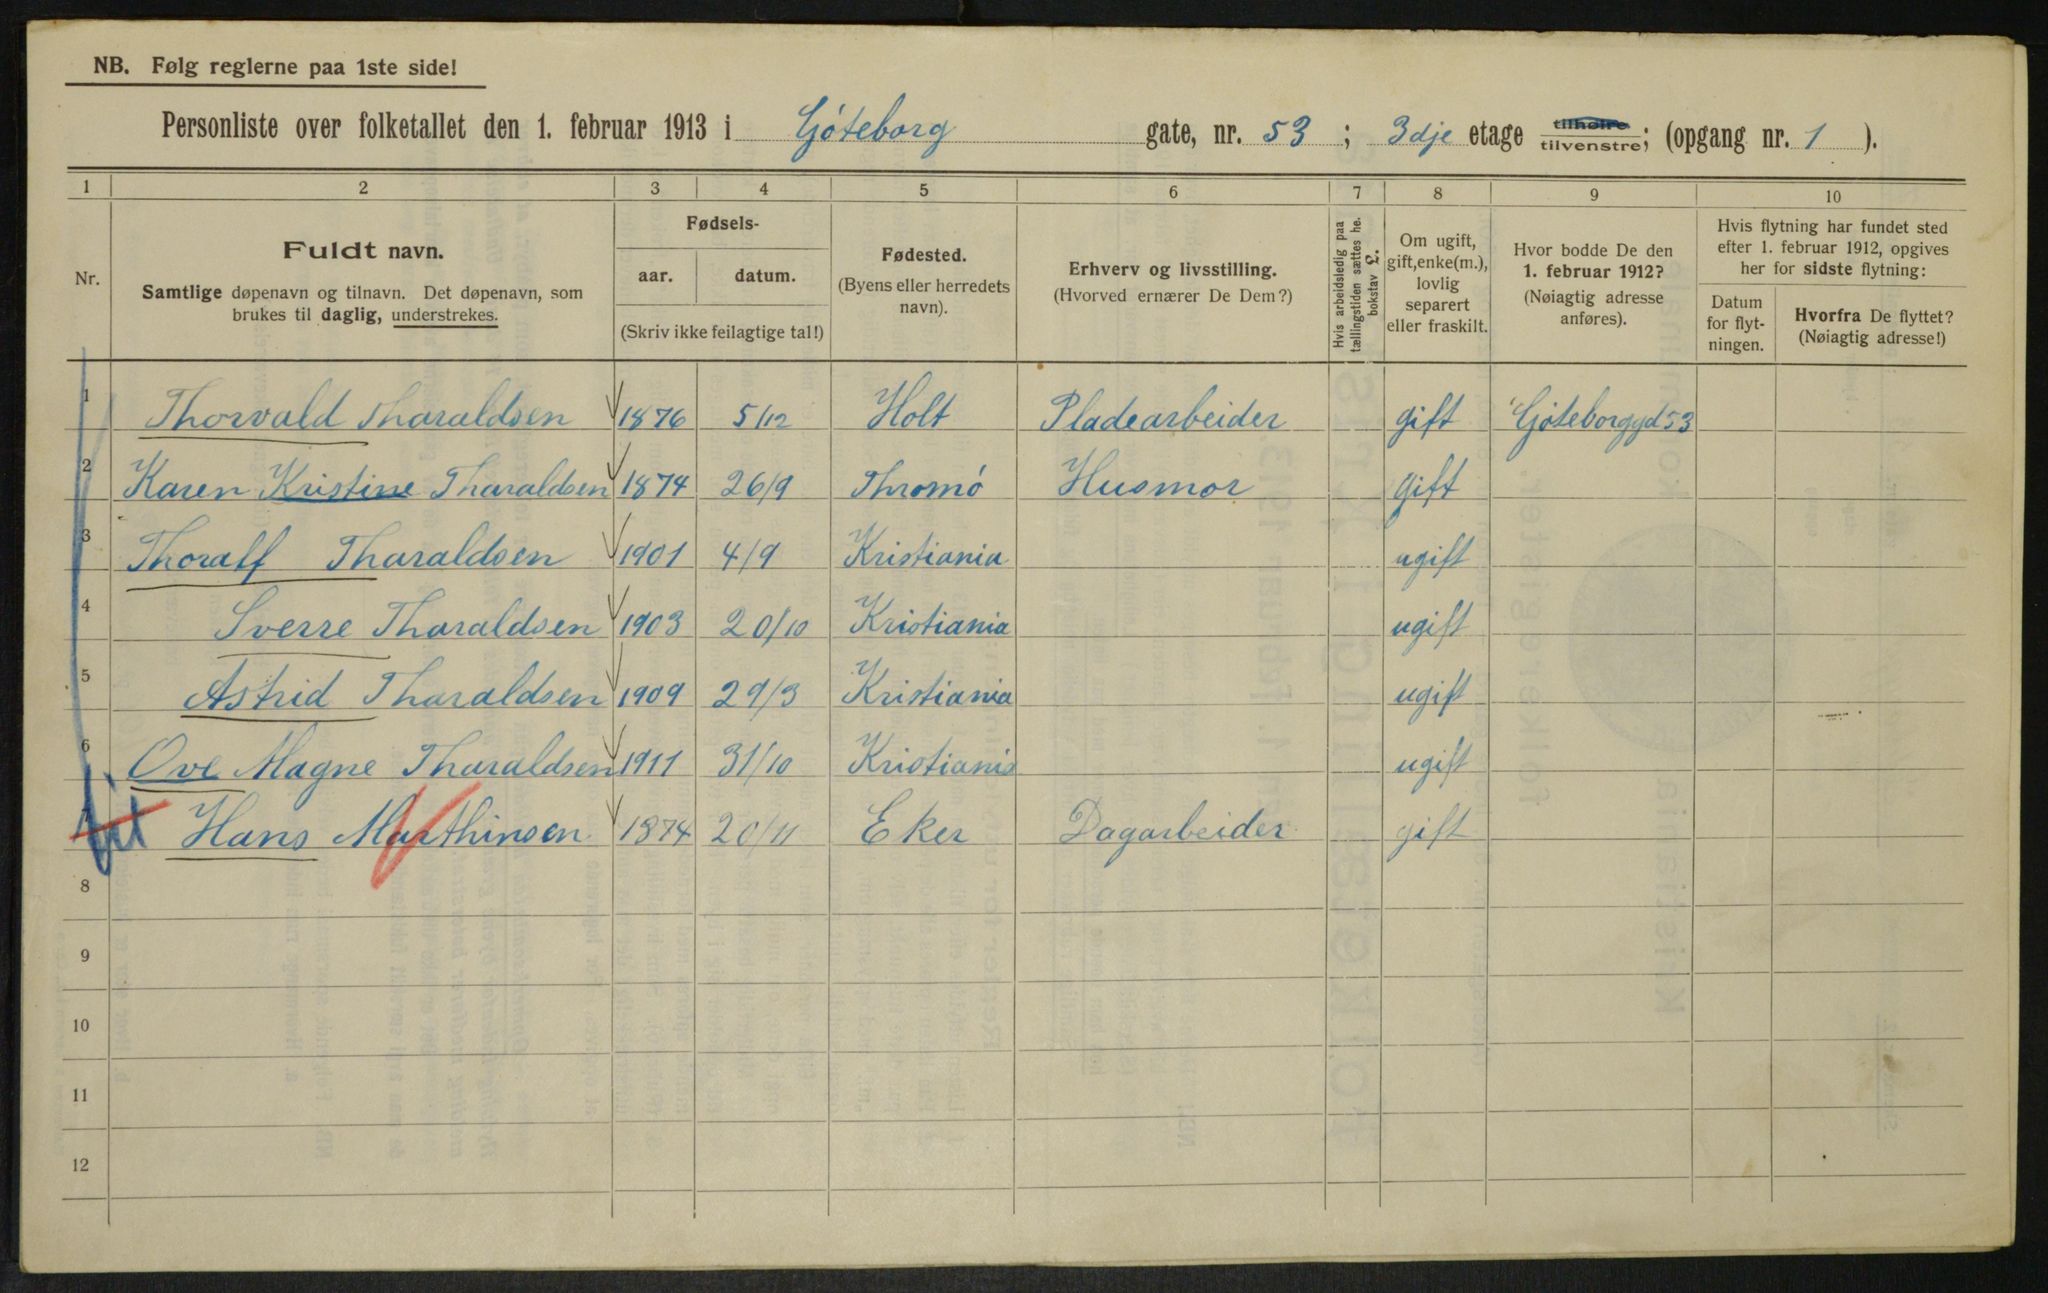 NB. Følg reglerne paa 1ste side!
Personliste over folketallet den 1. februar 1913 i Göteborg gate, nr. 53 ; 3dje etage tilhøire tilvenstre; (opgang nr. 1 ).
1 2 3 4 5 6 7 8 9 10
Nr.
Fuldt navn.
Samtlige døpenavn og tilnavn. Det døpenavn, som
brukes til daglig, understrekes.
Fødsels-
aar. datum.
(Skriv ikke feilagtige tal!)
Fødested.
(Byens eller herredets
navn).
Erhverv og livsstilling.
(Hvorved ernærer De Dem?)
Hvis arbeidsledig paa
tællingstiden sættes he.
bokstav L.
Om ugift,
gift, enke(m.),
lovlig
separert
eller fraskilt.
Hvor bodde De den
1. februar 1912?
(Nøiagtig adresse
anføres).
Hvis flytning har fundet sted
efter 1. februar 1912, opgives
her for sidste flytning:
Datum
for flyt-
ningen.
Hvorfra De flyttet?
(Nøiagtig adresse!)
1 Thorvald Tharaldsen 1876 5/12 Holt Pladearbeider gift Göteborggd 53
2 Karen Kristine Tharaldsen 1874 26/9 Thromö Husmor gift
3 Thoralf Tharaldsen 1901 4/9 Kristiania ugift
4 Sverre Tharaldsen 1903 20/10 Kristiania ugift
5 Astrid Tharaldsen 1909 29/3 Kristiania ugift
6 Ove Magne Tharaldsen 1911 31/10 Kristiania ugift
7 Hans Marthinsen 1874 20/11 Eker Dagarbeider gift
8
9
10
11
12